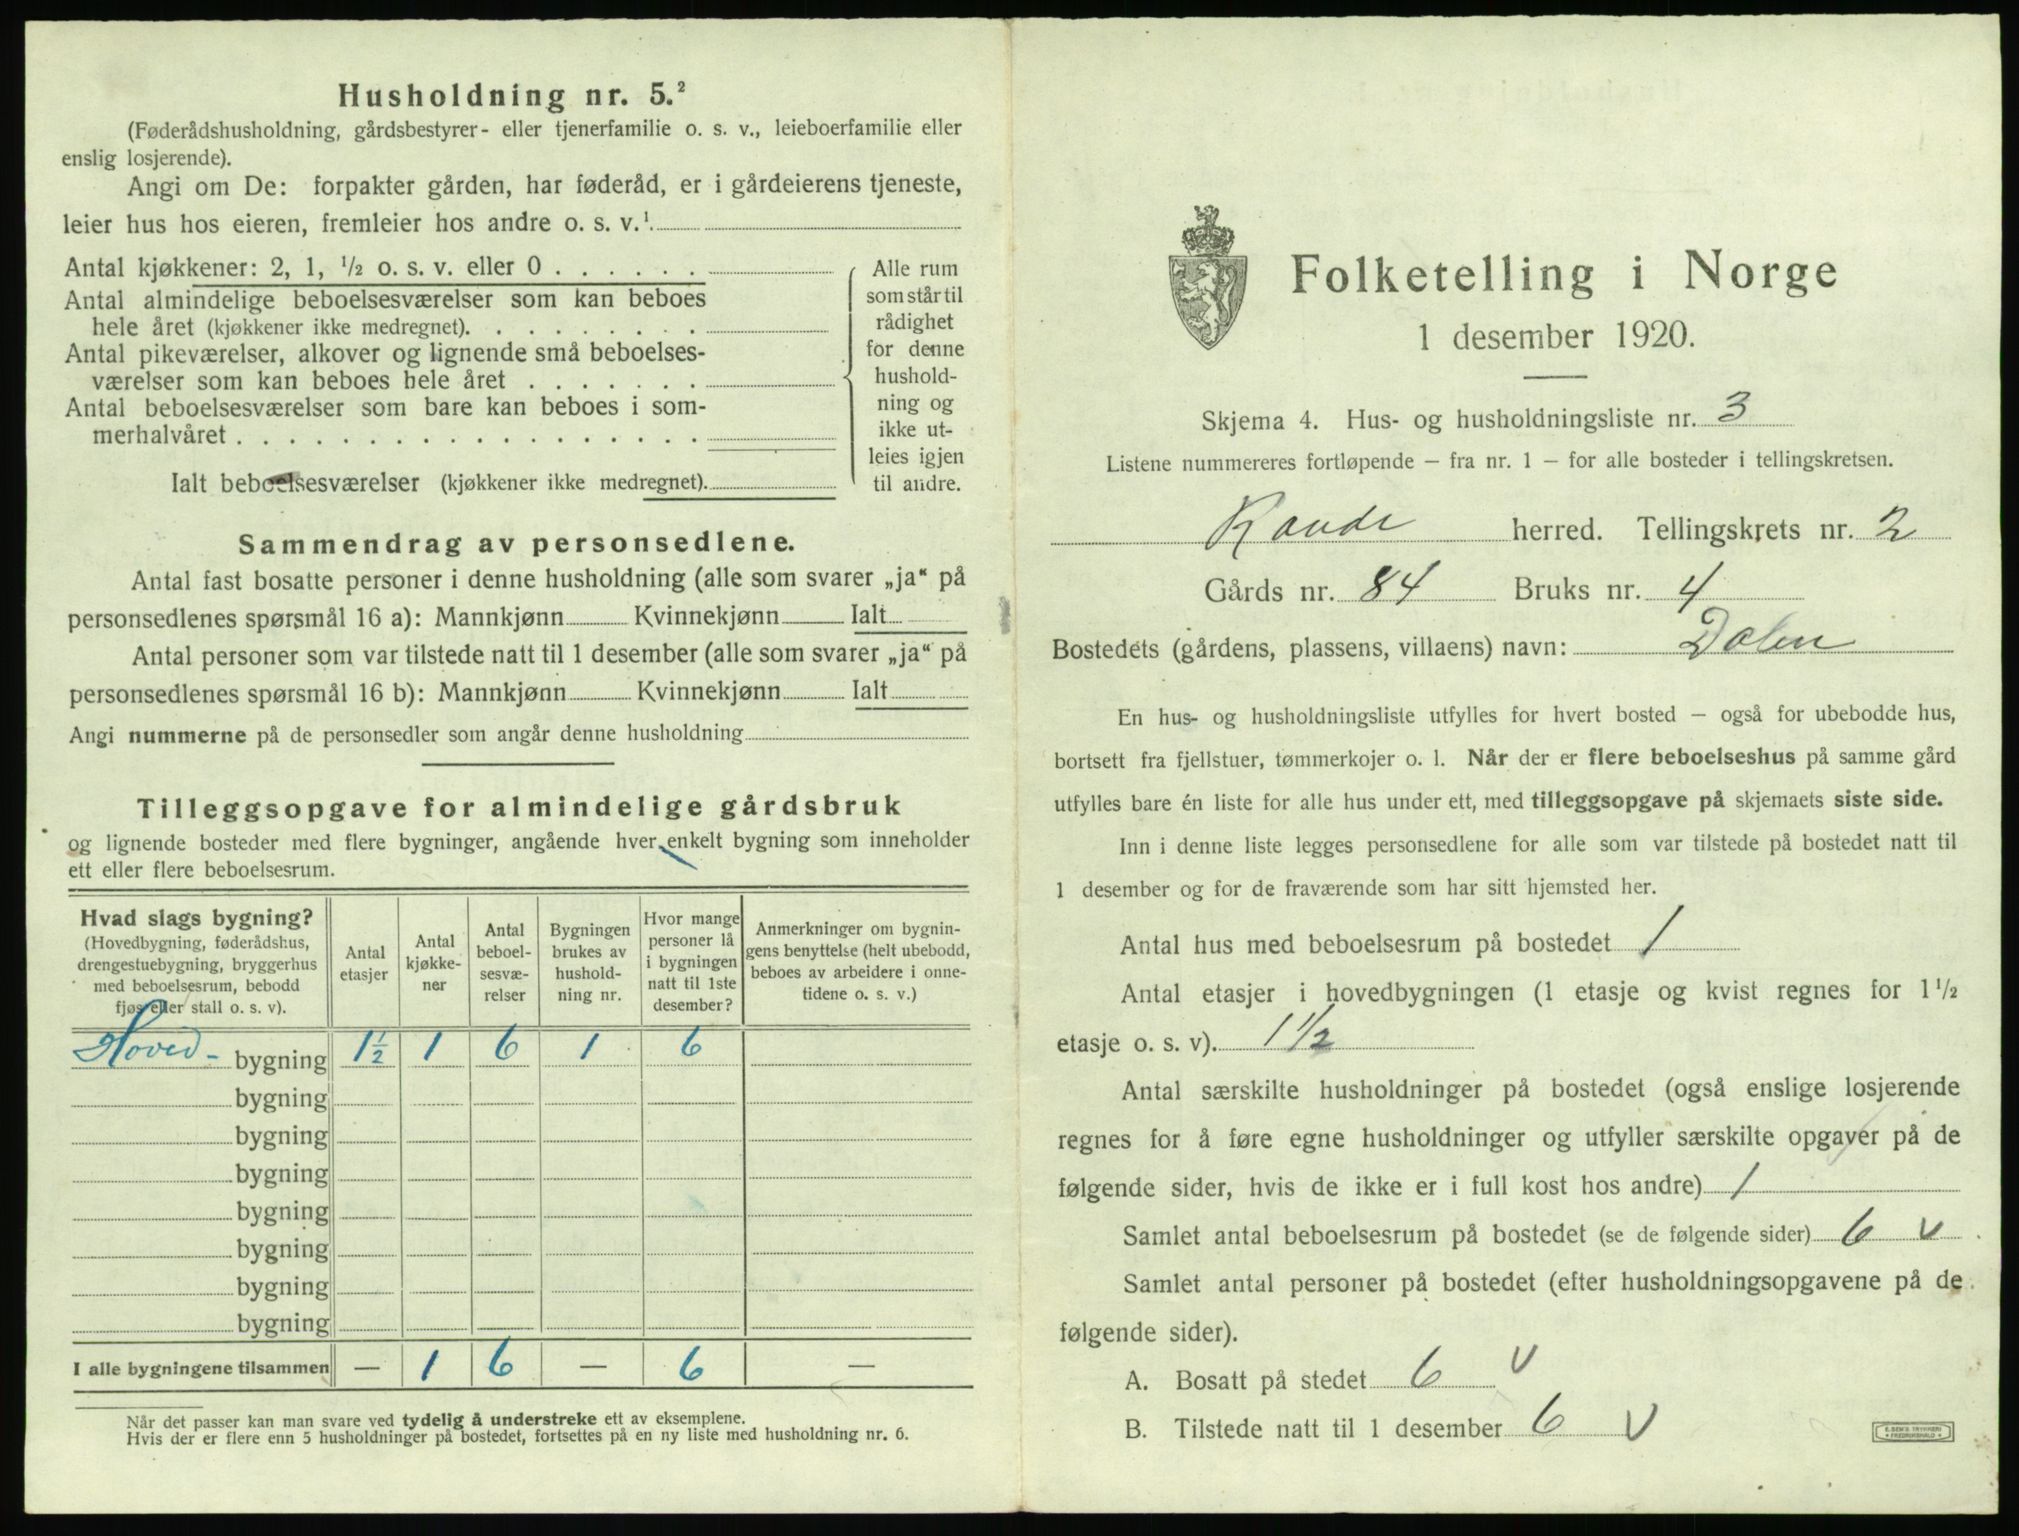 Husholdning nr. 5.²
(Føderådshusholdning, gårdsbestyrer- eller tjenerfamilie o. s. v., leieboerfamilie eller
enslig losjerende).
Angi om De: forpakter gården, har føderåd, er i gårdeierens tjeneste,
leier hus hos eieren, fremleier hos andre o. s. v.¹
Antal kjøkkener: 2, 1, ½ o. s. v. eller 0
Antal almindelige beboelsesværelser som kan beboes
hele året (kjøkkener ikke medregnet).
Antal pikeværelser, alkover og lignende små beboelses-
værelser som kan beboes hele året
Antal beboelsesværelser som bare kan beboes i som-
merhalvåret
Ialt beboelsesværelser (kjøkkener ikke medregnet).
Alle rum
som står til
rådighet
for denne
hushold-
ning og
ikke ut-
leies igjen
til andre.
Sammendrag av personsedlene.
Antal fast bosatte personer i denne husholdning (alle som svarer „ja“ på
personsedlenes spørsmål 16 a): Mannkjønn Kvinnekjønn Ialt
Antal personer som var tilstede natt til 1 desember (alle som svarer „ja“ på
personsedlenes spørsmål 16 b): Mannkjønn Kvinnekjønn Ialt
Angi nummerne på de personsedler som angår denne husholdning
Tilleggsopgave for almindelige gårdsbruk
og lignende bosteder med flere bygninger, angående hver enkelt bygning som inneholder
ett eller flere beboelsesrum.
Hvad slags bygning?
(Hovedbygning, føderådshus,
drengestuebygning, bryggerhus
med beboelsesrum, bebodd
fjøs eller stall o. s. v).
Antal
etasjer
Antal
kjøkke-
ner
Antal
beboel-
sesvæ-
relser
Bygningen
brukes av
hushold-
ning nr.
Hvor mange
personer lå
i bygningen
natt til 1ste
desember?
Anmerkninger om bygnin-
gens benyttelse (helt ubebodd,
beboes av arbeidere i onne-
tidene o. s. v.)
Hoved- bygning 1½ 1 6 1 6
bygning
bygning
bygning
bygning
bygning
bygning
bygning
I alle bygningene tilsammen — 1 6 — 6 —
Når det passer kan man svare ved tydelig å understreke ett av eksemplene.
Hvis der er flere enn 5 husholdninger på bostedet, fortsettes på en ny liste med husholdning nr. 6.
Folketelling i Norge
1 desember 1920.
Skjema 4. Hus- og husholdningsliste nr. 3
Listene nummereres fortløpende — fra nr. 1 — for alle bosteder i tellingskretsen.
Raade herred. Tellingskrets nr. 2
Gårds nr. 84 Bruks nr. 4
Bostedets (gårdens, plassens, villaens) navn: Dalen
En hus- og husholdningsliste utfylles for hvert bosted — også for ubebodde hus,
bortsett fra fjellstuer, tømmerkojer o. l. Når der er flere beboelseshus på samme gård
utfylles bare én liste for alle hus under ett, med tilleggsopgave på skjemaets siste side.
Inn i denne liste legges personsedlene for alle som var tilstede på bostedet natt til
1 desember og for de fraværende som har sitt hjemsted her.
Antal hus med beboelsesrum på bostedet 1
Antal etasjer i hovedbygningen (1 etasje og kvist regnes for 1½
etasje o. s. v). 1½
Antal særskilte husholdninger på bostedet (også enslige losjerende
regnes for å føre egne husholdninger og utfyller særskilte opgaver på de
følgende sider, hvis de ikke er i full kost hos andre) 1
Samlet antal beboelsesrum på bostedet (se de følgende sider) 6 v
Samlet antal personer på bostedet (efter husholdningsopgavene på de
følgende sider).
A. Bosatt på stedet 6 v
B. Tilstede natt til 1 desember 6 v
E. SEM'S TRYKKERI
FREDRIKSHALD